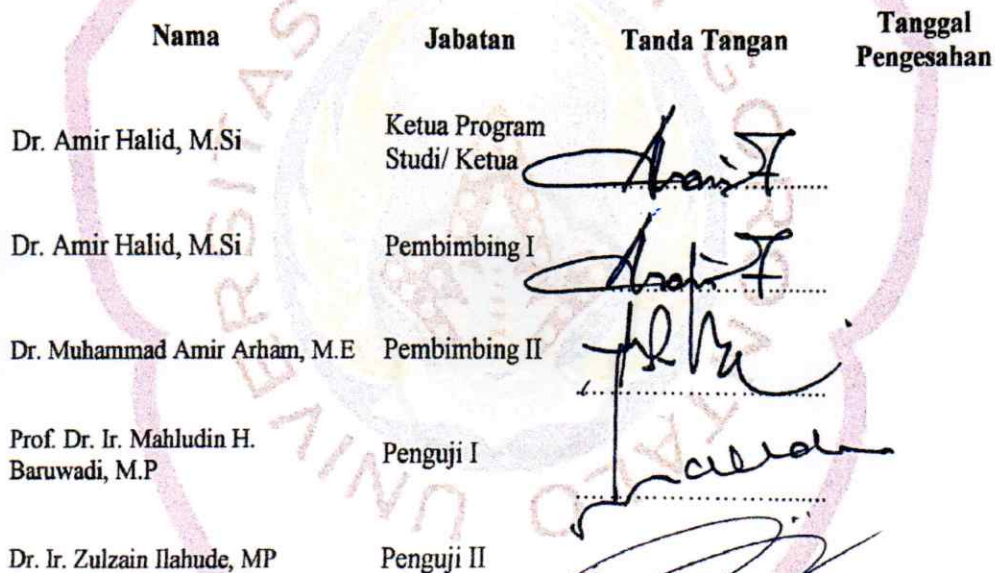 Nama Jabatan Tanda Tangan Tanggal
Pengesahan
Dr. Amir Halid, M.Si Ketua Program
Studi/ Ketua
Dr. Amir Halid, M.Si Pembimbing I
Dr. Muhammad Amir Arham, M.E Pembimbing II
Prof. Dr. Ir. Mahludin H.
Baruwadi, M.P Penguji I
Dr. Ir. Zulzain Ilahude, MP Penguji II
UNIVERSITAS